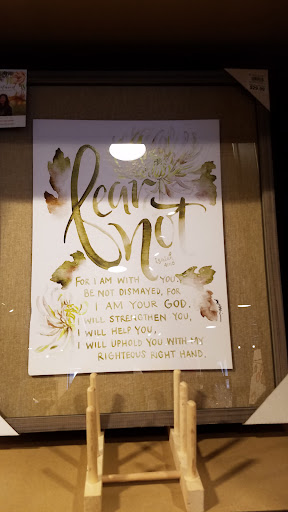 fear
not
Isaiah
41:10
FOR I AM WITH YOU.
BE NOT DISMAYED, FOR
I AM YOUR GOD.
I WILL STRENGTHEN YOU,
I WILL HELP YOU,
I WILL UPHOLD YOU WITH MY
RIGHTEOUS RIGHT HAND.